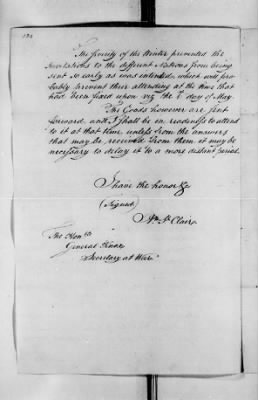 The severity of the Winter prevented the
Invitations to the different Nations from being
sent so early as was intended, which will pro-
bably prevent their attending at the time that
had been fixed upon viz the 1st day of May.
The Goods however are sent
forward, and I shall be in readiness to attend
to it at that time, unless from the answers
that may be received from them it may be
necessary to delay it to a more distant period.
I have the honor &c
(Signed)
Ar. St. Clair
The Honble
General Knox
Secretary at War